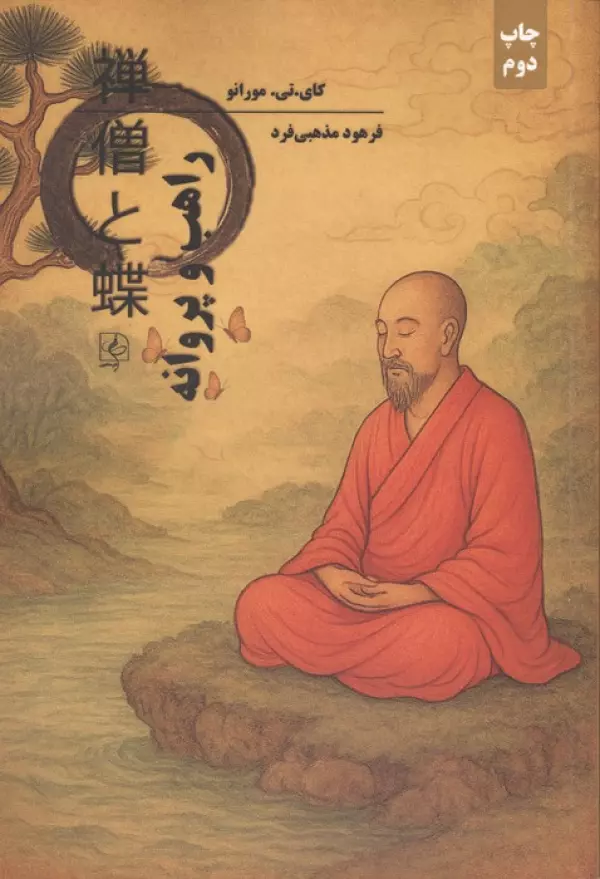 چاپ
دوم
کای.تی. مورانو
فرهود مذهبی‌فرد
禅僧と蝶
راهب و پروانه